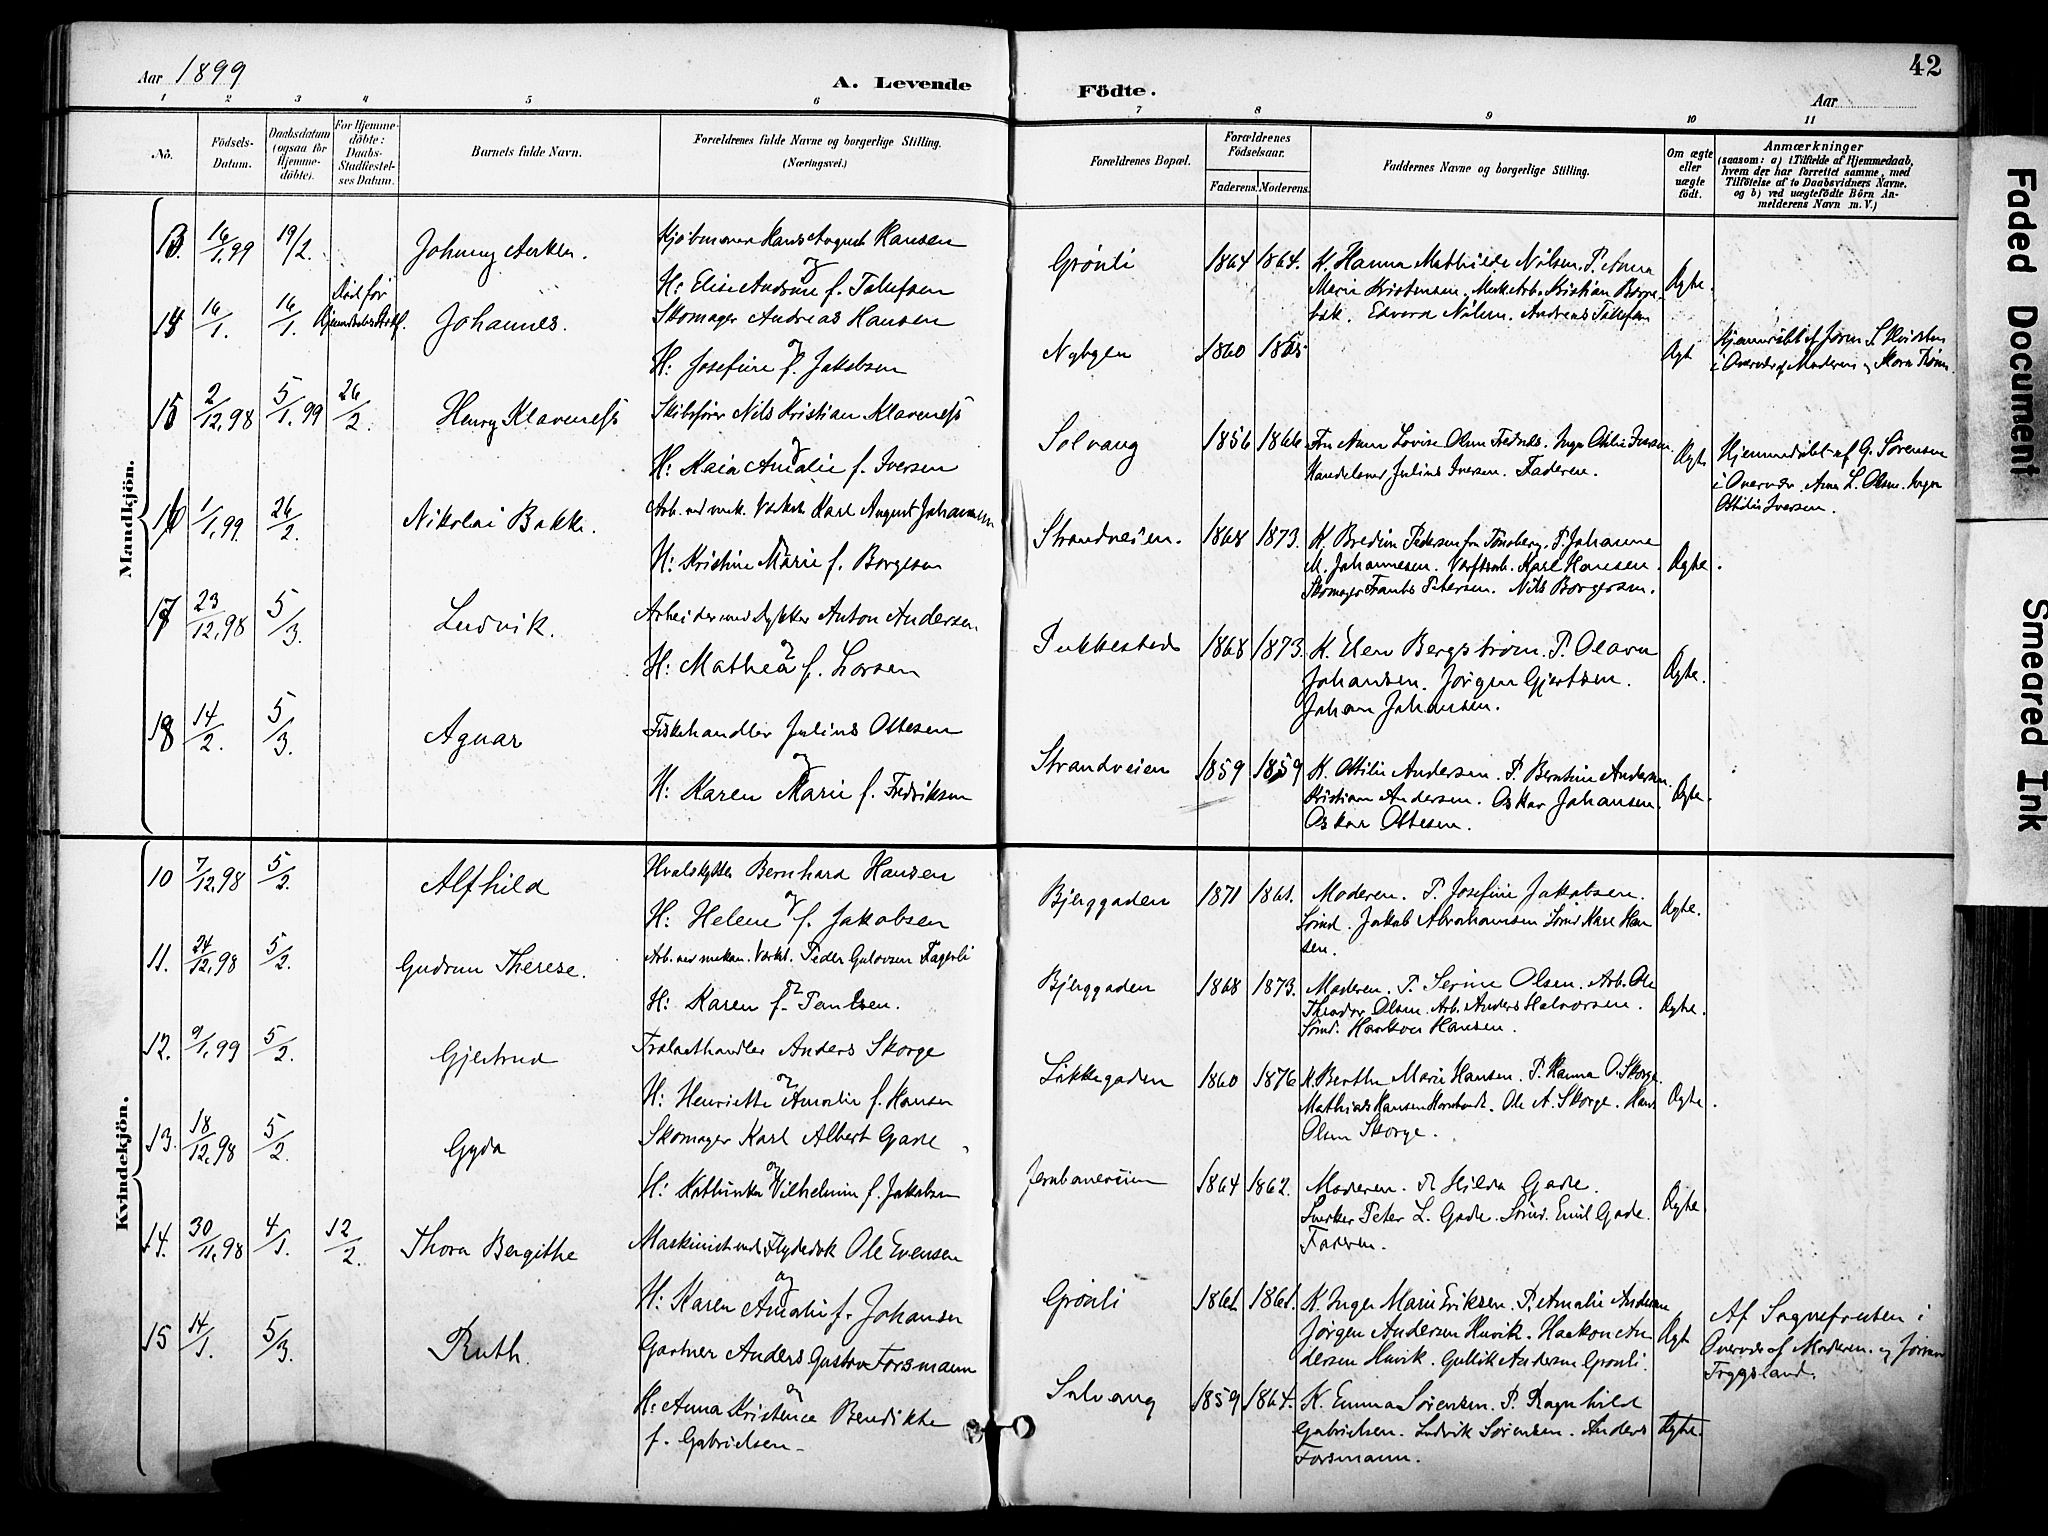 Aar 1899
A. Levende
Födte.
Aar
42
1 2 3 4 5 6 7 8 9 10 11
No.
Födsels-Datum.
Daabsdatum (ogsaa för Hjemmedöbte).
For Hjemmedöbte: Daabs-Stadfæstelses Datum.
Barnets fulde Navn.
Forældrenes fulde Navne og borgerlige Stilling. (Næringsvei.)
Forældrenes Bopæl.
Forældrenes Födselsaar.
Faderens. Moderens.
Faddernes Navne og borgerlige Stilling.
Om ægte eller uægte födt.
Anmærkninger
(saasom: a) i Tilfælde af Hjemmedaab, hvem der har forrettet samme, med Tilföielse af to Daabsvidners Navne. og b) ved uægtefödte Börn Anmelderens Navn m. V.)
Mandkjön.
13. 16/1.99 19/2. Johnny
Hans August Hansen
og
H: Elise f. Tollefsen
Grönli 1864 1864.
K. Hanna Mathilde Nilsen. P. Anna
Marie Kristensen. Kristian
Edvard Nilsen. Andreas Tollefsen
Ægte.
14 16/1. 16/1. Död för Johannes.
Skomager Andreas Hansen
og
H: Josefine f. Jakobsen
Nybyen 1860 1865
Ægte
Hjemmedöbt af
i Overvær af Moderen og
15 2/12.98 5/1.99 26/2. Henry Klaveness
Skibsförer Nils Kristian Klaveness
og
H: Kaia Amalie f. Iversen
Solvang 1856 1866
Fru Anna Lovise Olsen
Julius Iversen. Faderen.
Ægte
Hjemmedöbt af G. Sörensen
i Overvær. Anna L. Olsen. Inga
Ottilie Iversen.
16 1/1.99. 26/2. Nikolai Bakke.
Arb. ved mek. Værkst. Karl August Johannesen
og
H: Kristine Marie f. Borgesen
Strandveien. 1868 1873.
K. Pedersen fra Tönsberg. P. Johanne
M. Johannesen. Værftsarb. Karl Hansen.
Skomager Frants Petersen. Nils Borgersen.
Ægte.
17 23/12.98 5/3. Ludvik.
Arbeider ved Dykker Anton Andersen
og
H: Mathea f. Larsen
1868 1873.
K. Elen Bergström. P. Olava
Johansen. Jörgen Gjertsen.
Johan Johansen.
Ægte.
18 14/2. 5/3. Agnar
Fiskehandler Julius Ottesen
og
H: Karen Marie f. Fredriksen
Strandveien 1859 1859
K. Ottilie Andersen. P. Berntine Andersen.
Kristian Andersen. Oskar Johansen.
Oskar Ottesen.
Ægte.
Kvindekjön.
10 7/12.98 5/2. Alfhild
Hvalskytter Bernhard Hansen
og
H: Helene f. Jakobsen
Bjerggaden 1871 1861.
Moderen. P. Josefine Jakobsen.
Sömd. Jakob Abrahamsen Sömd. Karl Han
sen.
Ægte.
11. 24/12.98 5/2. Gudrun Therese.
Arb. ved mekan. Værkst. Peder Gulovsen Fagerli
og
H: Karen f. Paulsen.
Bjerggaden 1868 1873.
Moderen. P. Serine Olsen. Arb. Ole
Theodor Olsen. Arb. Anders Halvorsen.
Sömd. Haakon Hansen.
Ægte.
12. 9/1.99 5/2. Gjertrud
Trelasthandler Anders Skorge
og
H: Henriette Amalie f. Hansen
Lökkegaden 1860 1876
K. Berthe Marie Hansen. P. Hanna O. Skorge.
Mathias Hansen Ole A. Skorge. Hans
Olsen Skorge.
Ægte.
13. 18/12.98 5/2. Gyda
Skomager Karl Albert Gade
og
H: Kathinka Vilhelmine f. Jakobsen
Jernbaneveien 1864 1862.
Moderen. P. Hilda Gade.
Peter L. Gade. Sömd. Emil Gade.
Faderen.
Ægte
14. 30/11.98 4/1. 12/2. Thora Bergithe
Maskinist ved Flydedok Ole Evensen
og
H: Karen Amalie f. Johansen
Grönli 1861 1861.
K. Inger Marie Eriksen. P. Amalie Andersen
Jörgen Andersen Huvik. Haakon An
dersen Huvik. Gullik Andersen Grönli.
Ægte
Af Sognepresten i
Overvær af Moderen og
15 14/1. 5/3. Ruth.
Gartner Anders Gustav Forsmann
og
H: Anna Kristence Benedikte
f. Gabrielsen.
Solvang 1859 1864.
K. Emma Sörensen. P. Ragnhild
Gabrielsen. Ludvik Sörensen. Anders
Forsmann.
Ægte.
Faded Document
Smeared Ink